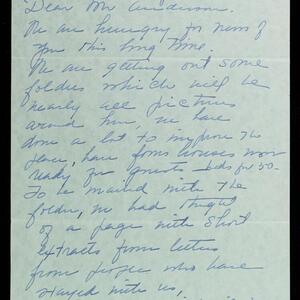 Dear Mr Anderson.
We are hungry for news of
you this long time.
We are getting out some
folders which will be
nearly all pictures
around here, we have
done a lot to improve the
place, have four houses now
ready for guests - beds for 50 -
To be mailed with the
folder, we had thought
of a page with short
extracts from letters
from people who have
stayed with us,